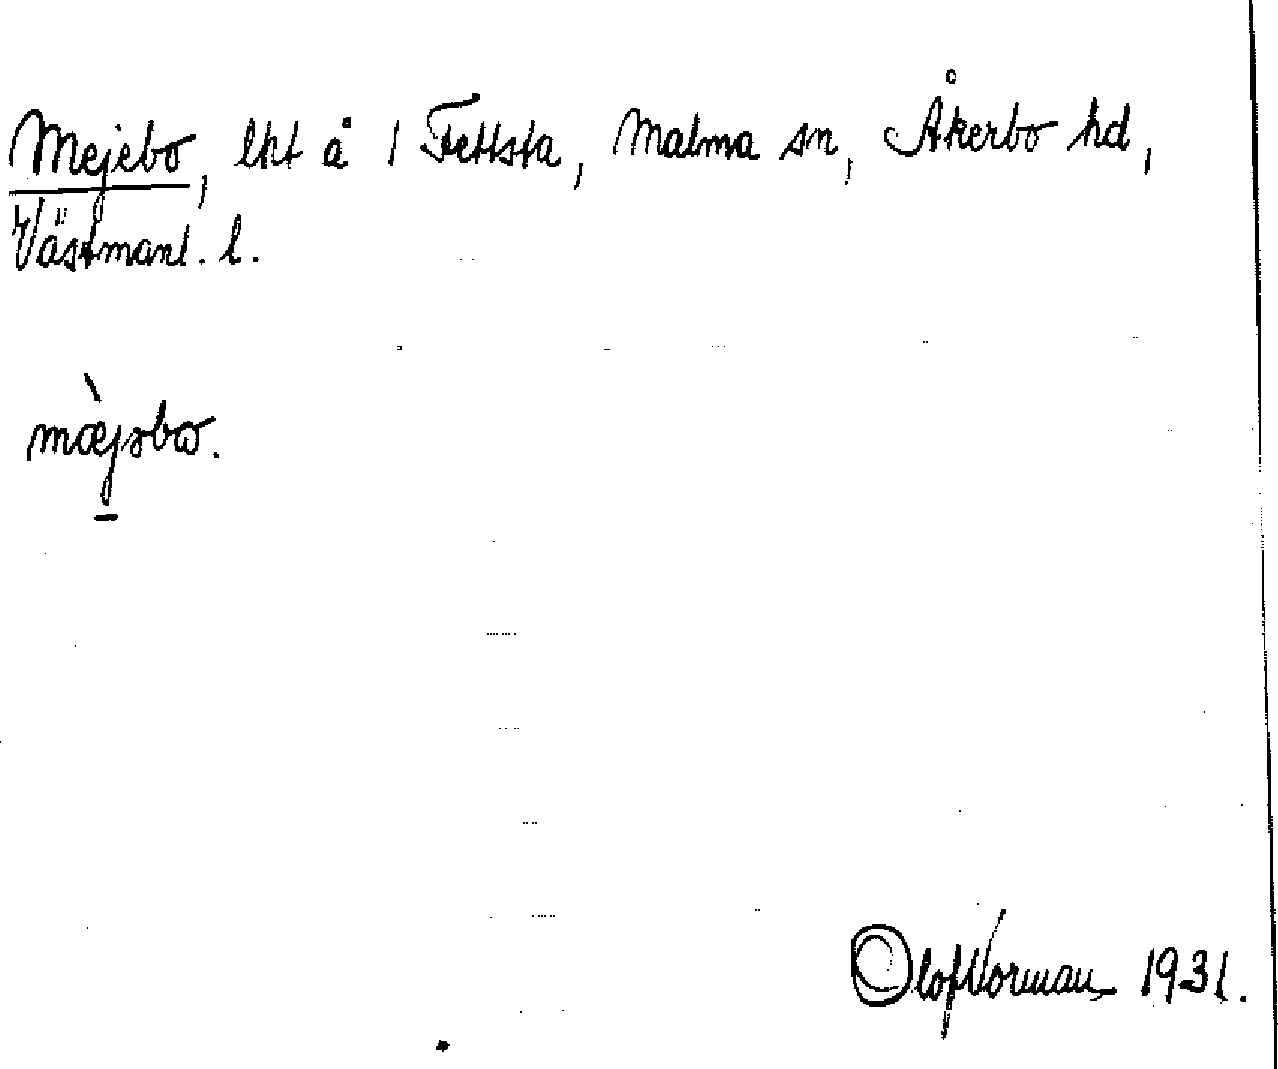 Mejebo, lht å 1 Fettsta, Malma sn, Åkerbo hd,
Västmanl. l.
mæ̀jəbω.
Olof Norman 1931.